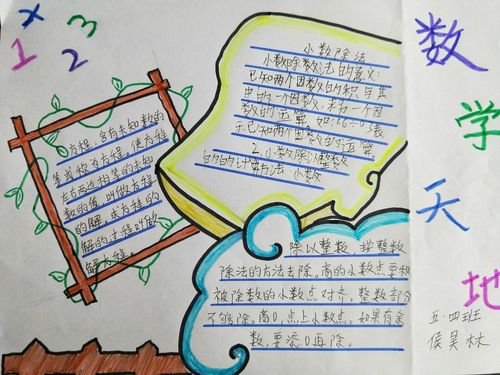 x
3
1
2
数
学
天
地
五·四班
侯昊林
小数除法
小数除数法的意义:
已知两个因数的积与其
中的一个因数,求另一个因
数的运算
示已知两个因数的
2.小数除以整数
的的计算方法:小数
除以整数,按整数
除法的方法去除。商的小数点要和
被除数的小数点对齐。整数部分
不够除。商0,点上小数点。如果有余
数,要添0再除。
方程,含有未知数的
等式称为方程,使方程
左右两边相等的未知
数的值,叫做方程
的解,求方程的
解的过程叫做
解方程。